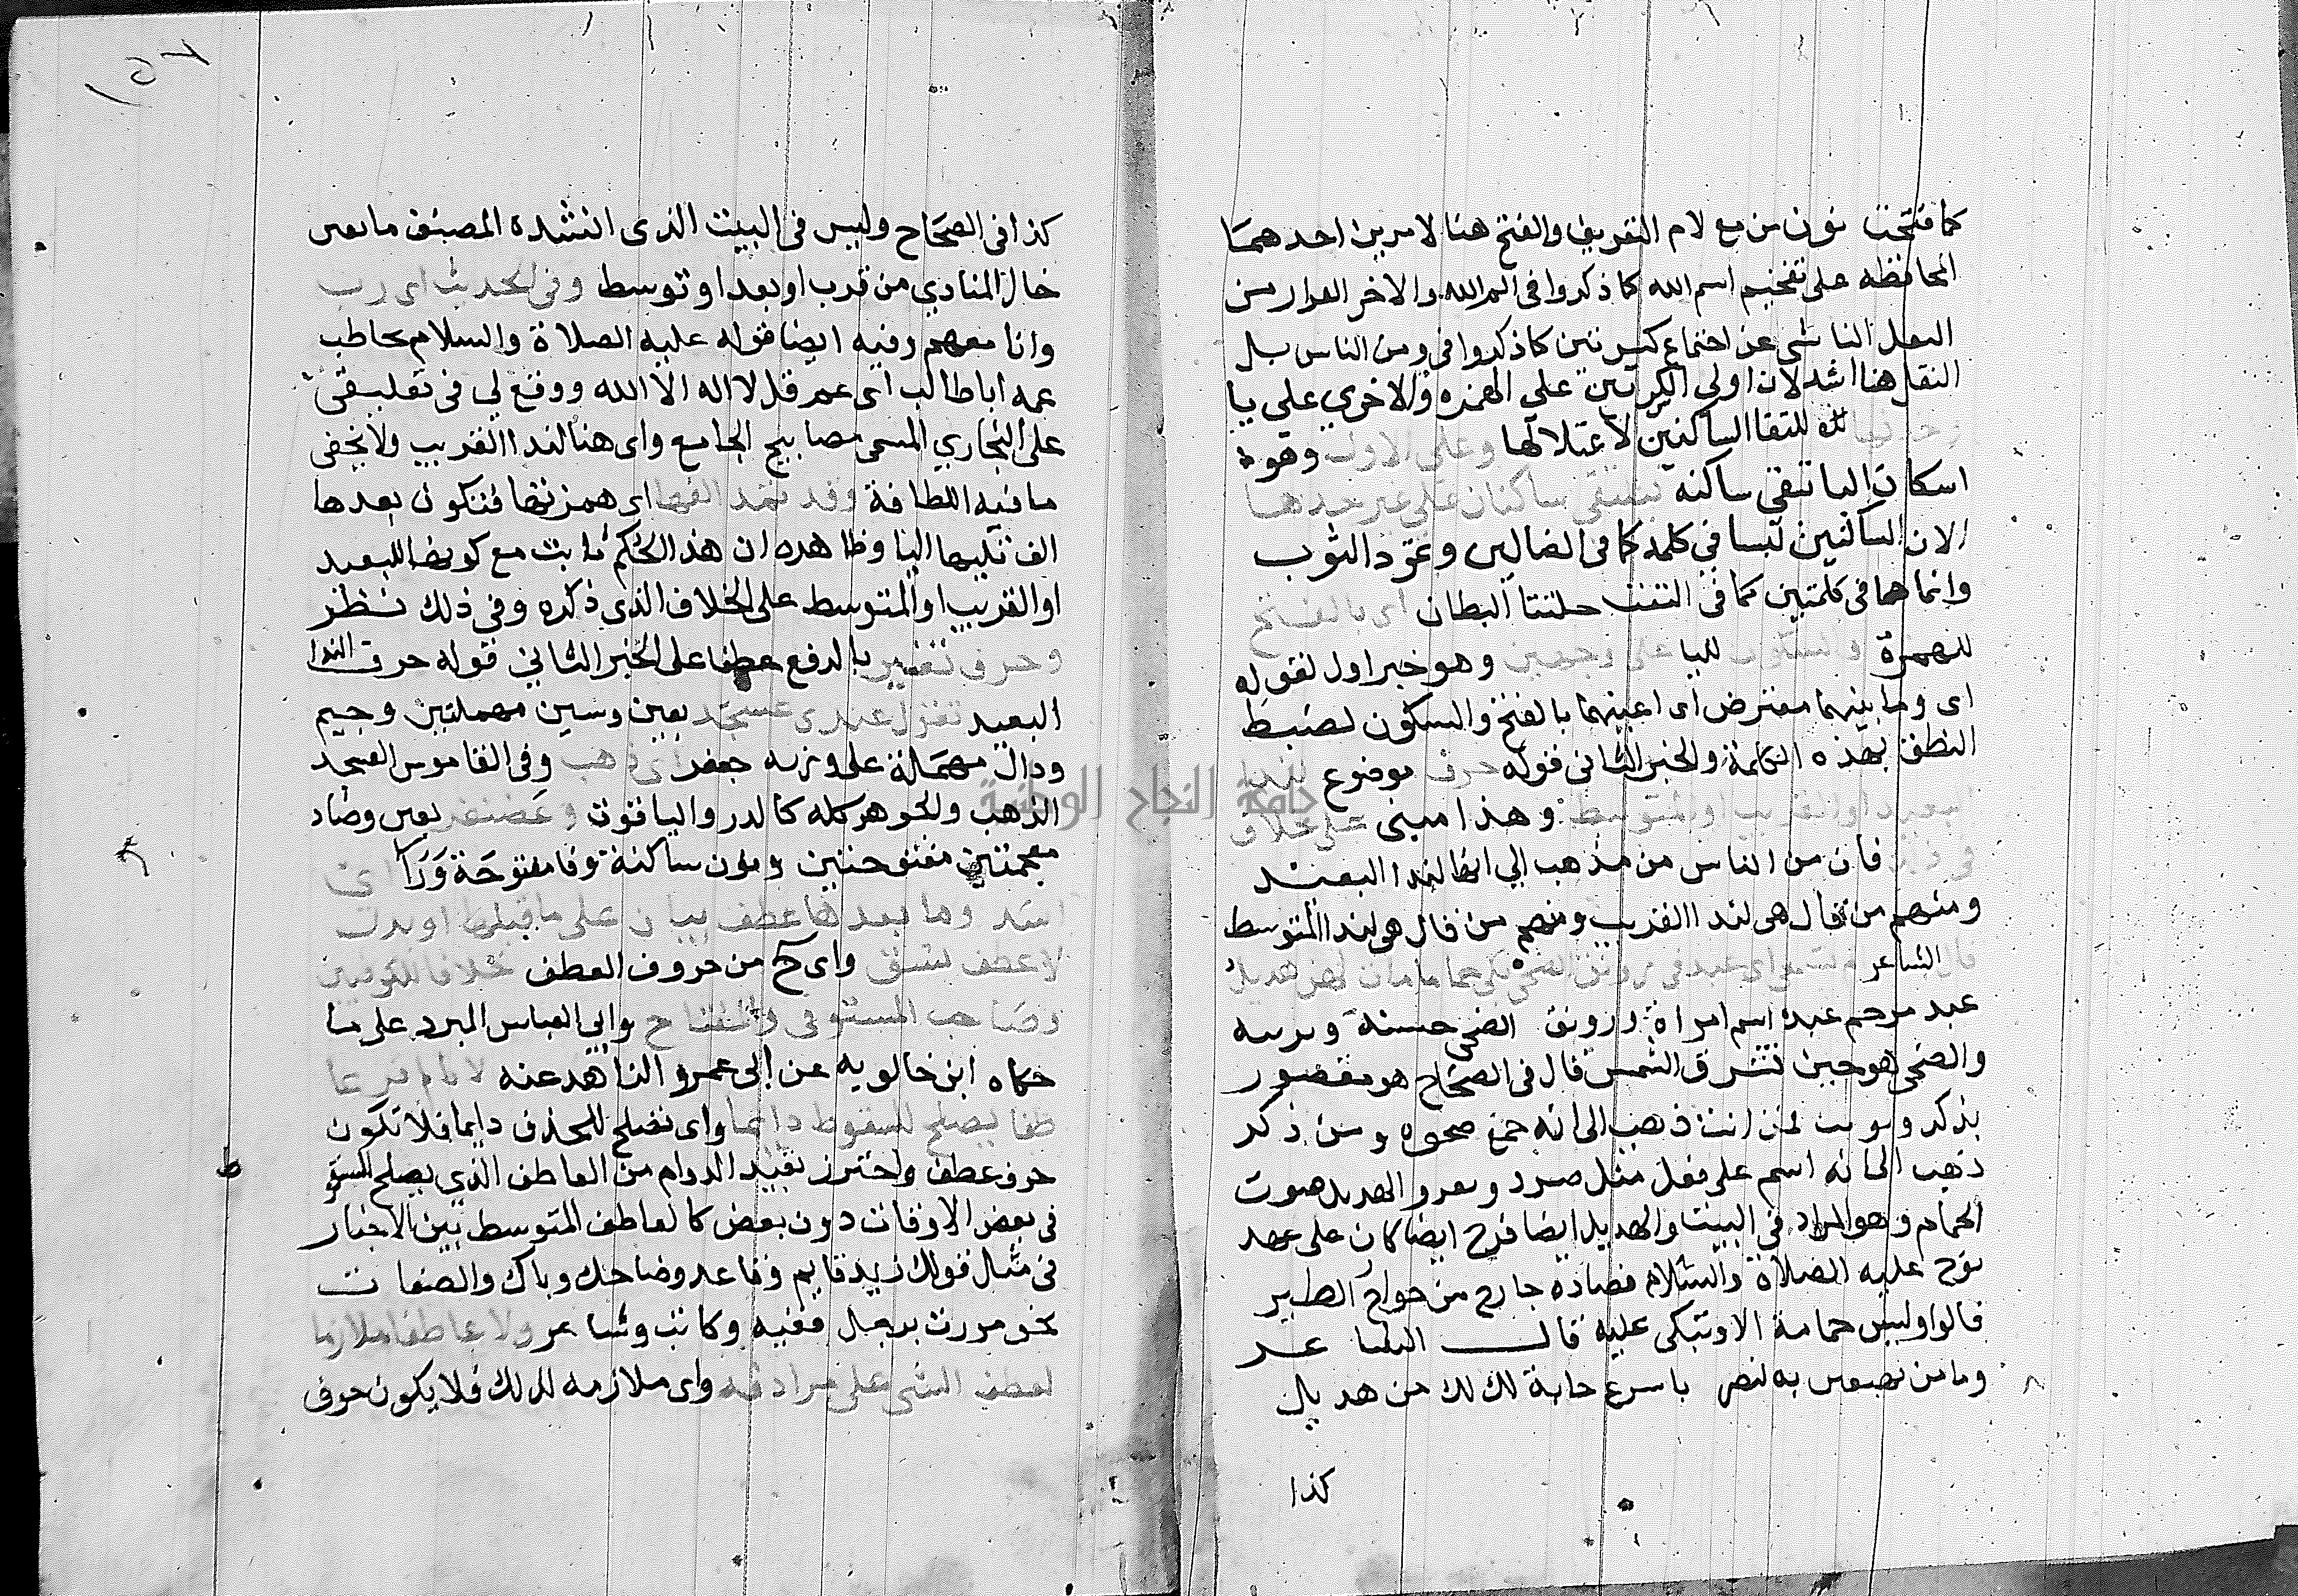 كما فتحت نون من مع لام التعريف والفتح هنا لامرين احدهما
المحافظه على تفخيم اسم الله كما ذكروا في الم الله والاخر الفرار من
الثقل الناشي عن اجتماع كسرتين كما ذكروا في ومن الناس بل
الثقل هنا اشد لان اولي الكسرتين على الهمزه والاخري علي يا
وحذفها لالتقا الساكنين لاعتلالها وعلى الاول وهو
اسكان اليا تبقي ساكنه فيلتقي ساكنان على غير حدهما
لان الساكنين ليسا في كلمه كما في الضالين وتمود الثوب
وانما هما في كلمتين كما في التقت حلقتا البطان اي بالفتح
للهمزة والسكون لليا على وجهين وهو خبر اول لقوله
اى وما بينهما معترض اى اعينهما بالفتح والسكون لضبط
النطق بهذه الكلمة والخبر الثانى قوله حرف موضوع لندا
البعيد او القريب او المتوسط وهذا مبنى على خلاف
في ذلك فان من الناس من مذهب الي انها لندا البعيد
ومنهم من قال هى لندا القريب ومنهم من قال هى لندا المتوسط
قال الشاعر الم تسمعي اى عبد فى رونق الضحى بكا حمامات لهن هديل
عبد مرخم عبدة اسم امراة ورونق الضحى حسنه وبريقه
والضحى هو حين تشرق الشمس قال فى الصحاح هو مقصور
يذكر ويونث فمن انث ذهب الى انه جمع ضحوه ومن ذكر
ذهب الى انه اسم على فعل مثل صرد ونغر والهديل صوت
الحمام وهو المراد فى البيت والهديل ايضا فرخ ايضا كان على عهد
نوح عليه الصلاة والسلام فصاده جارح من جوارح الطير
قالوا وليس حمامة الا وتبكى عليه قال الشاعر
وما من تهتفين به لنصر باسرع جابة لك من هديل
كذا
كذا فى الصحاح وليس فى البيت الذى انشده المصنف ما يعين
حال المنادي من قرب او بعد او توسط وفى الحديث اى رب
وانا معهم وفيه ايضا قوله عليه الصلاة والسلام يخاطب
عمه ابا طالب اى عم قل لا اله الا الله ووقع لي فى تعليقي
على البخاري المسمى مصابيح الجامع واى هنا لندا القريب ولا يخفى
ما فيه اللطافة وقد تمد الفها اى همزتها فتكون بعدها
الف تليها اليا وظاهره ان هذا الحكم ثابت مع كونها للبعيد
او القريب او المتوسط على الخلاف الذى ذكره وفي ذلك نظر
وحرف تفسير بالرفع عطفا على الخبر الثاني قوله حرف الندا
البعيد تقول عندى عسجد بعين وسين مهملتين وجيم
ودال مهملة على وزن جعفر اى ذهب وفى القاموس العسجد
الذهب والجوهر كله كالدر والياقوت وغضنفر بغين وضاد
معجمتين مفتوحتين ونون ساكنة وفا مفتوحة ورا اى
اسد وما بعدها عطف بيان على ما قبلها او بدل
لا عطف نسق واى ح من حروف العطف خلافا للكوفيين
وصاحب المستوفى والمفتاح وابي العباس المبرد على ما
حكاه ابن خالويه عن ابى عمرو الزاهد عنه لانا لم نر عا
طفا يصلح للسقوط دايما واى تصلح للحذف دايما فلا تكون
حرف عطف واحترز بقيد الدوام من العاطف الذي يصلح للسقوط
فى بعض الاوقات دون بعض كالعاطف المتوسط بين الاخبار
فى مثال قولك زيد قايم وقاعد وضاحك وباك والصفات
نحو مررت برجل فقيه وكاتب وشاعر ولا عاطفا ملازما
لعطف الشى على مرادفه واى ملازمه لذلك فلا يكون حرف
جامعة النجاح الوطنية